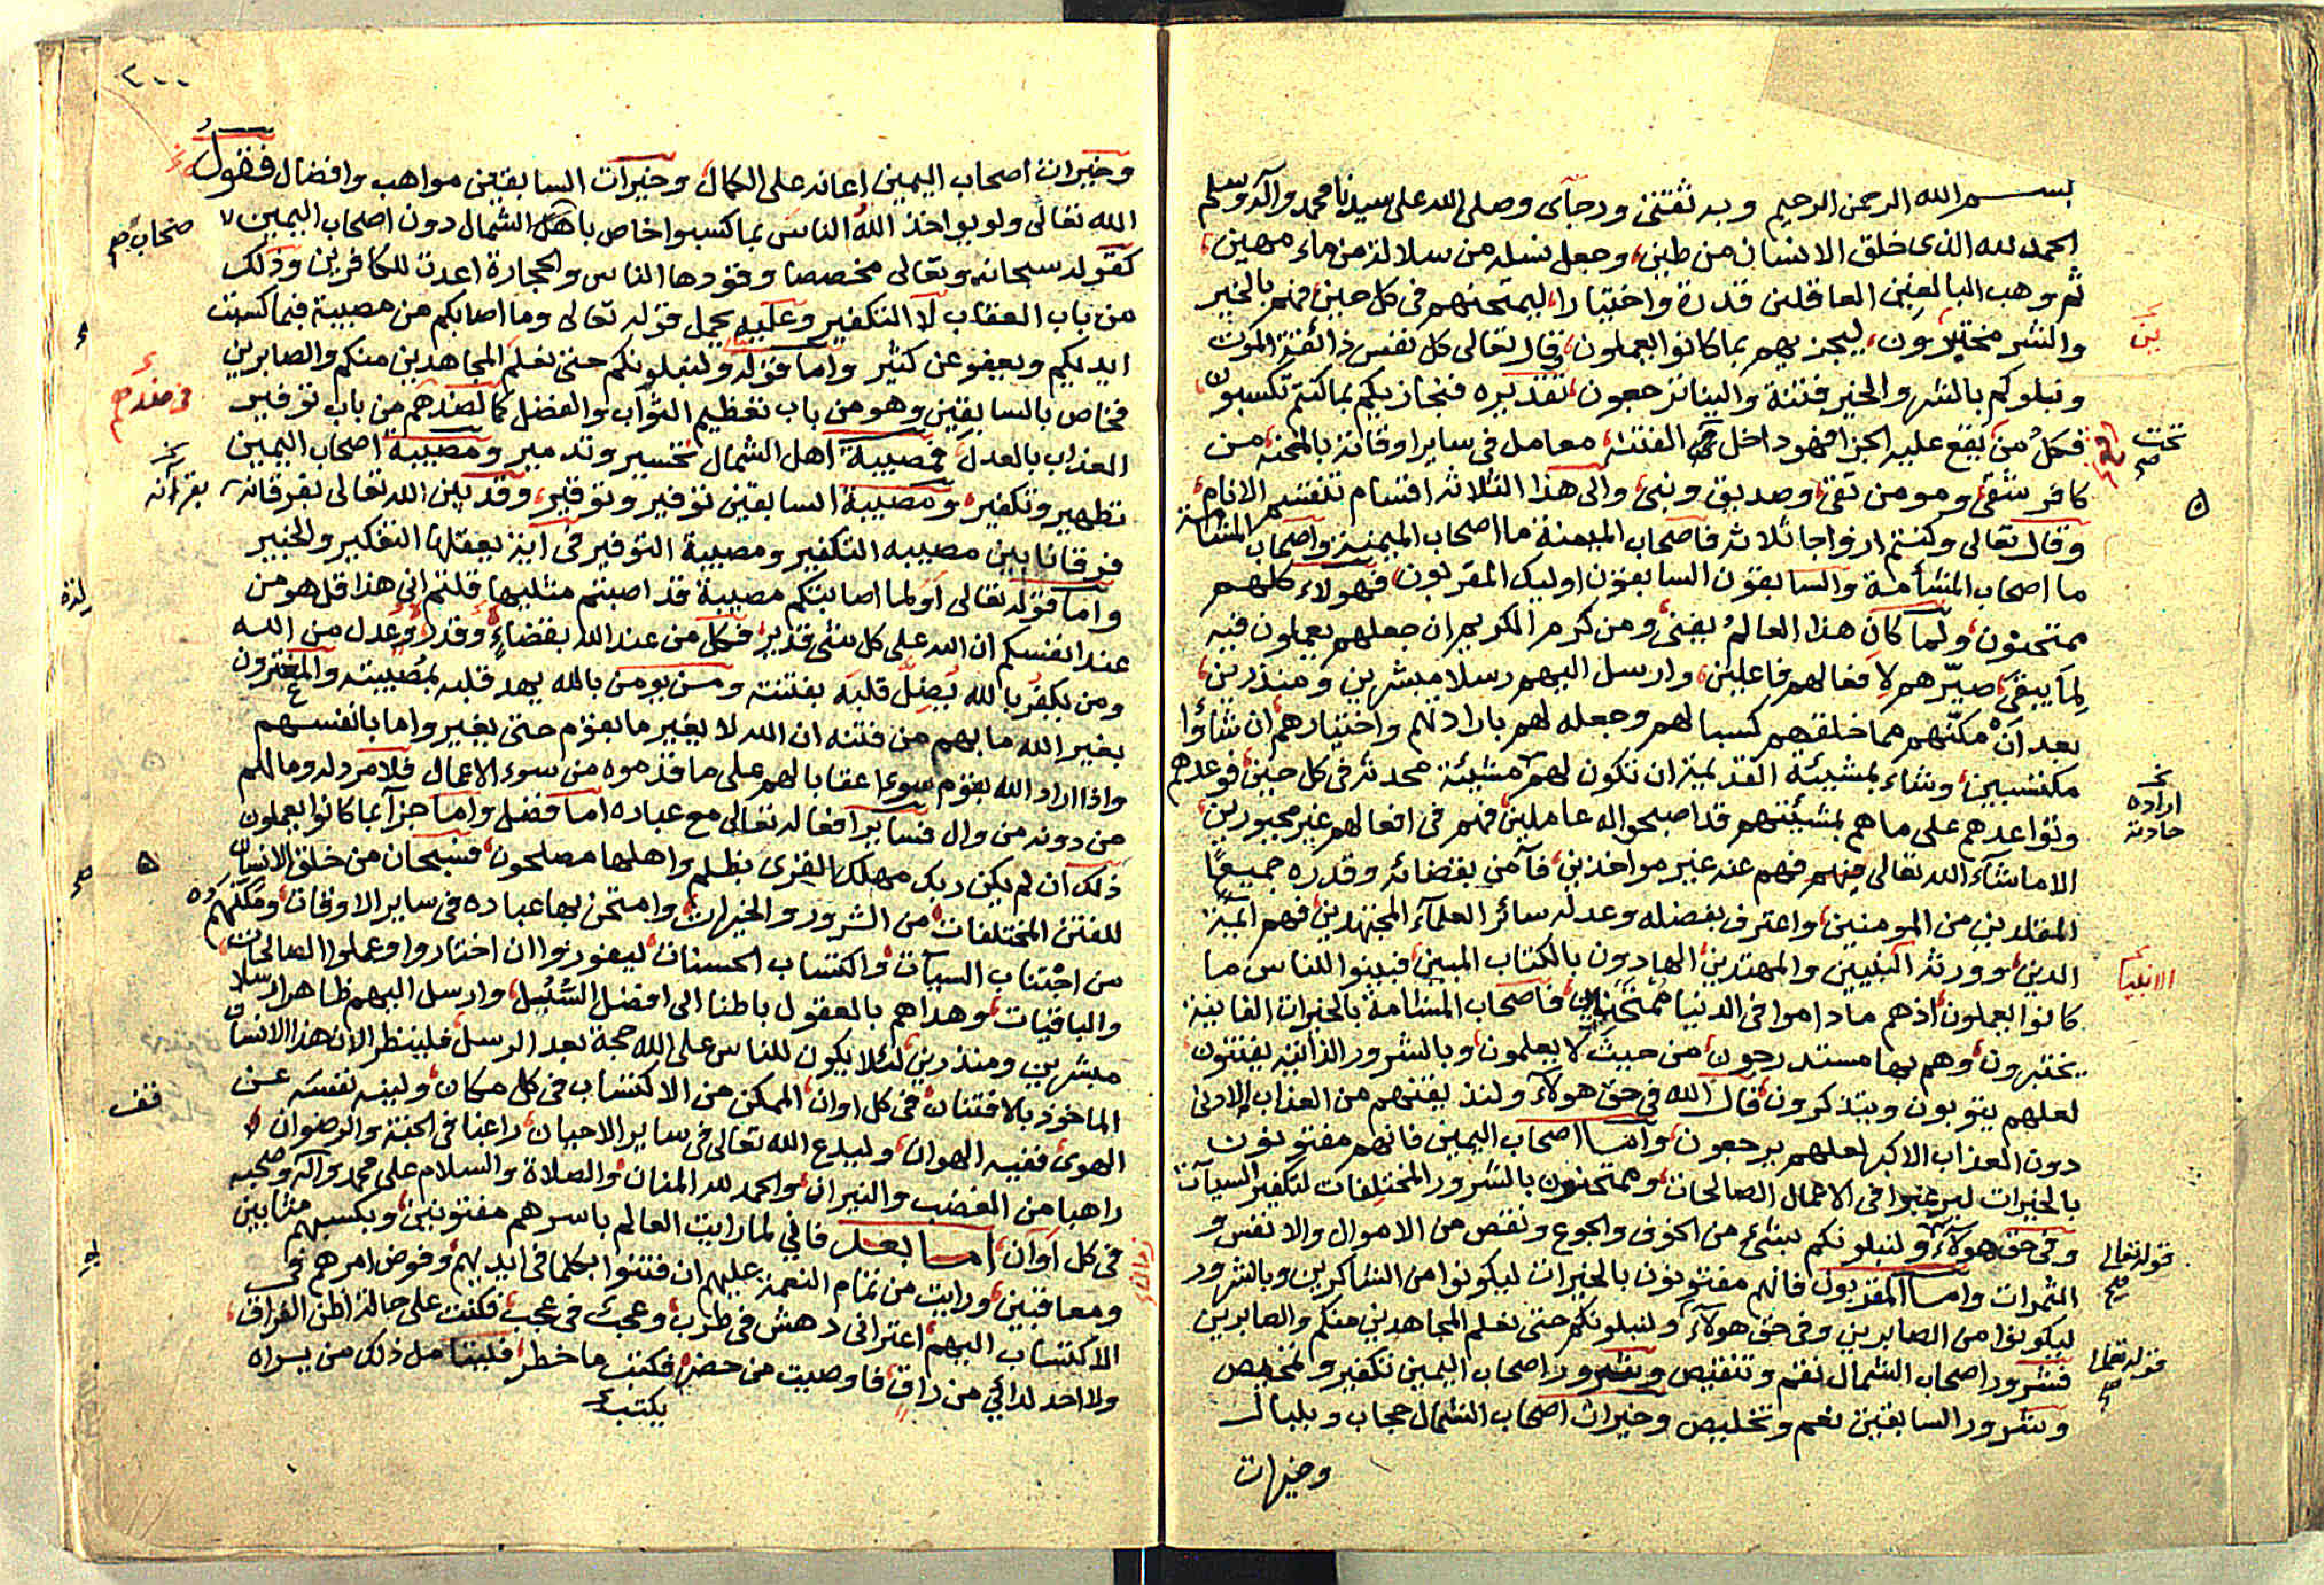 بسم الله الرحمن الرحيم وبه ثقتى ورجاى وصلى الله على سيدنا محمد وآله وسلم
الحمد لله الذى خلق الانسان من طين، وجعل نسله من سلالة من ماء مهين،
ثم وهب البالغين العاقلين قدرة واختيارا، ليمتحنهم فى كل حين، فهم بالخير
والشر مختبرون، ليجزيهم بما كانوا يعملون، قال تعالى كل نفس ذائقة الموت
ونبلوكم بالشر والخير فتنة والينا ترجعون، تقديره فنجازيكم بما كنتم تكسبون،
فكل من يقع عليه الجزا فهو داخل الفتنة، معامل فى ساير اوقاته بالمحنة، من
كافر شقى، ومومن تقى، وصديق ونبى، والى هذا الثلاثة اقسام تنقسم الانام،
وقال تعالى وكنتم ازواجا ثلاثه فاصحاب الميمنة ما اصحاب الميمنة واصحاب المشأمة
ما اصحاب المشأمة والسابقون السابقون اوليك المقربون، فهولاء كلهم
ممتحنون، ولما كان هذا العالم يفنى، ومن كرم الكريم ان جعلهم يعملون فيه
لما يبقى، صيّرهم لافعالهم فاعلين، وارسل اليهم رسلا مبشرين ومنذرين،
بعد ان مكنهم مما خلق فيهم كسبا لهم وجعله لهم بارادتهم واختيارهم، ان شاؤا
مكتسبين، وشاء بمشيئة القديمة ان تكون لهم مشيئة محدثة فى كل حين، فوعدهم
وتواعدهم على ما هم بمشيئتهم قد اصبحوا له عاملين، فهم فى افعالهم غير مجبورين،
الا ما شاء الله تعالى منهم فهم عنه غير مواخذين، فآمن بقضائه وقدره جميع
المقلدين من المومنين، واعترف بفضله وعدله سائر العلمآء المجتهدين، فهم ائمة
الدين، وورثة النبيين والمهتدين، الهادون بالكتاب المبين، فبينوا للناس ما
كانوا يعملون، اذ هم ما داموا فى الدنيا ممتحنون، فاصحاب المشامة بالخيرات الفانية
يختبرون، وهم بها مستدرجون، من حيث لا يعلمون، وبالشرور الذانية يفتنون،
لعلهم يتوبون ويتذكرون، قال الله فى حق هولآء ولنذيقنهم من العذاب الادنى
دون العذاب الاكبر لعلهم يرجعون، واما اصحاب اليمين فانهم مفتونون
بالخيرات ليرغبوا فى الاعمال الصالحات، وممتحنون بالشرور المختلفات لتكفير السيآت
وفى حق هولآء ولنبلونكم بشئ من الخوف والجوع ونقص من الاموال والانفس و
الثمرات واما المقربون فانهم مفتونون بالخيرات ليكونوا من الشاكرين وبالشرور
ليكونوا من الصابرين وفى حق هولآء ولنبلونكم حتى نعلم المجاهدين منكم والصابرين
فشرور اصحاب الشمال نقم وتنقيص وشرور اصحاب اليمين تكفير وتمحيص
وشرور السابقين نعم وتخليص وخيرات اصحاب الشمال حجاب وبلبال
وخيرات
تحت
صح
نخ
ارادة
حادثة
الانبيا
قوله تعالى
صح
قوله تعالى
صح
٢٠٠
وخيرات اصحاب اليمين اعانه على الكمال، وخيرات السابقين مواهب وافضال فقول
الله تعالى ولو يواخذ الله الناس بما كسبوا خاص باهل الشمال دون اصحاب اليمين
كقوله سبحانه وتعالى مخصصا وقودها الناس والحجارة اعدت للكافرين وذلك
من باب العقاب لا التكفير وعليه يحمل قوله تعالى وما اصابكم من مصيبة فبما كسبت
ايديكم ويعفو عن كثير واما قوله ولنبلونكم حتى نعلم المجاهدين منكم والصابرين
فخاص بالسابقين وهو من باب تعظيم الثواب والفضل كالضدهم من باب توفير
العذاب بالعدل، فمصيبة اهل الشمال تخسير وتدمير ومصيبة اصحاب اليمين
تطهير وتكفير، ومصيبة السابقين توفير وتوقير، وقد بين الله تعالى بفرقانه
فرقانا بين مصيبه التكفير ومصيبة التوفير فى اية يعقلها التفكير والخبير
واما قوله تعالى اولما اصابتكم مصيبة قد اصبتم مثليها قلتم انى هذا قل هو من
عند انفسكم ان الله على كل شئ قدير، فكل من عند الله بقضاء، وقدر، وعدل من الله
ومن يكفر بالله يضل قلبه بفتنته ومن يومن بالله يهد قلبه بمصيبته والمغترون
يغير الله ما بهم من فتنه ان الله لا يغير ما بقوم حتى يغيروا ما بانفسهم
واذا اراد الله بقوم سوءا عقابا لهم على ما قدموه من سوء الاعمال فلا مرد له وما لهم
من دونه من وال فساير افعاله تعالى مع عباده اما فضل واما جزآء بما كانوا يعملون
ذلك ان لم يكن ربك مهلك القرى بظلم واهلها مصلحون، فسبحان من خلق الانسان
للفتن المختلفات، من الشرور والخيرات، وامتحن بها عباده فى ساير الاوقات، ومكنهم
من اجتناب السيآت، واكتساب الحسنات، ليفوزوا ان اختاروا وعملوا الصالحات،
والباقيات، وهداهم بالمعقول باطنا الى افضل السُّبُل، وارسل اليهم ظاهرا رسلا
مبشرين ومنذرين، لئلا يكون للناس على الله حجة بعد الرسل، فلينظر الان هذا الانسان
الماخوذ بالافتنان، فى كل اوان، الممكن من الاكتساب فى كل مكان، ولينه نفسه عن
الهوى، ففيه الهوان، وليدع الله تعالى فى ساير الاحيان، راغبا فى الجنة والرضوان،
راهبا من الغضب والنيران، والحمد لله المنان، والصلاة والسلام على محمد وآله وصحبه
فى كل اوان، اما بعد فانى لما رايت العالم باسرهم مفتونين، وبكسبهم مثابين
ومعاقبين، ورايت من تمام النعمة عليهم ان فتنوا بكلما فى ايديهم، وفوض امرهم فى
الاكتساب اليهم، اعترانى دهش فى طرب، وعجب فى عجب، فكنت على حالة اظن الفراق،
ولا احد لدائى من راق، فاوصيت من حضر، فكتب ما خطر، فليتامل ذلك من يراه
يكتب
نخ
بقرآنه
قف